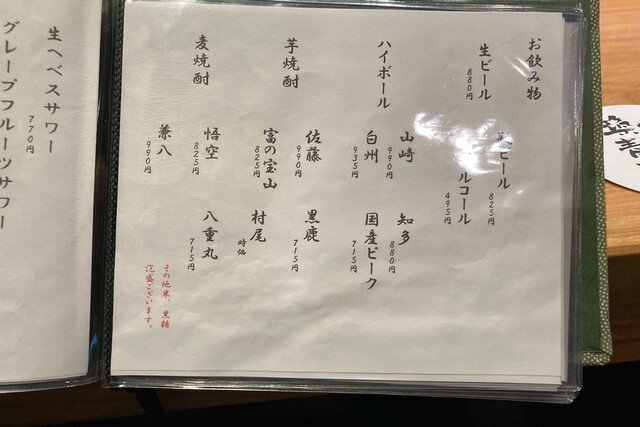 お飲み物
生ビール
880円
ビール
825円
ルコール
495円
ハイボール
山崎
990円
知多
880円
白州
935円
国産ピーク
715円
芋焼酎
佐藤
990円
黒鹿
715円
富の宝山
825円
村尾
時価
麦焼酎
悟空
825円
八重丸
715円
兼八
990円
その他米、黒糖
泡盛ございます。
生ヘベスサワー
770円
グレープフルーツサワー